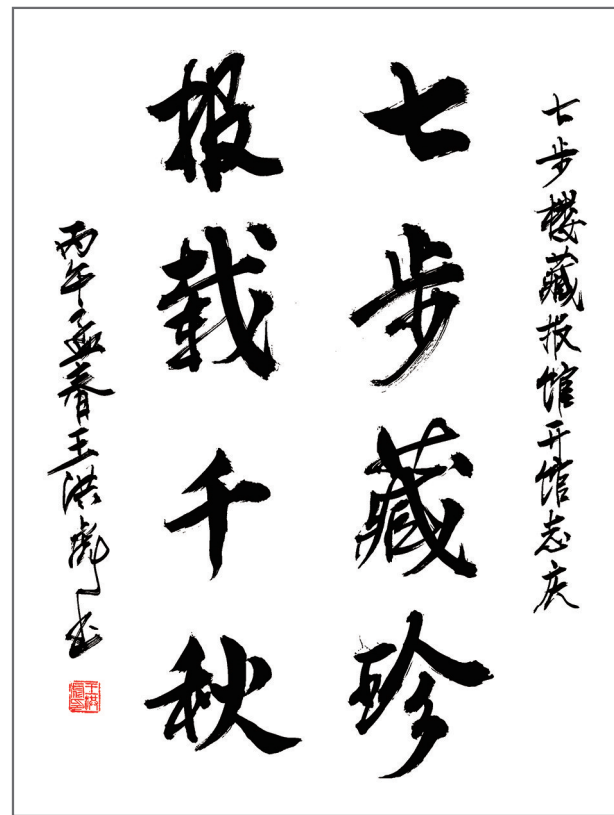 七步楼藏报馆开馆志庆
七步藏珍
报载千秋
丙午孟春王洪彪书